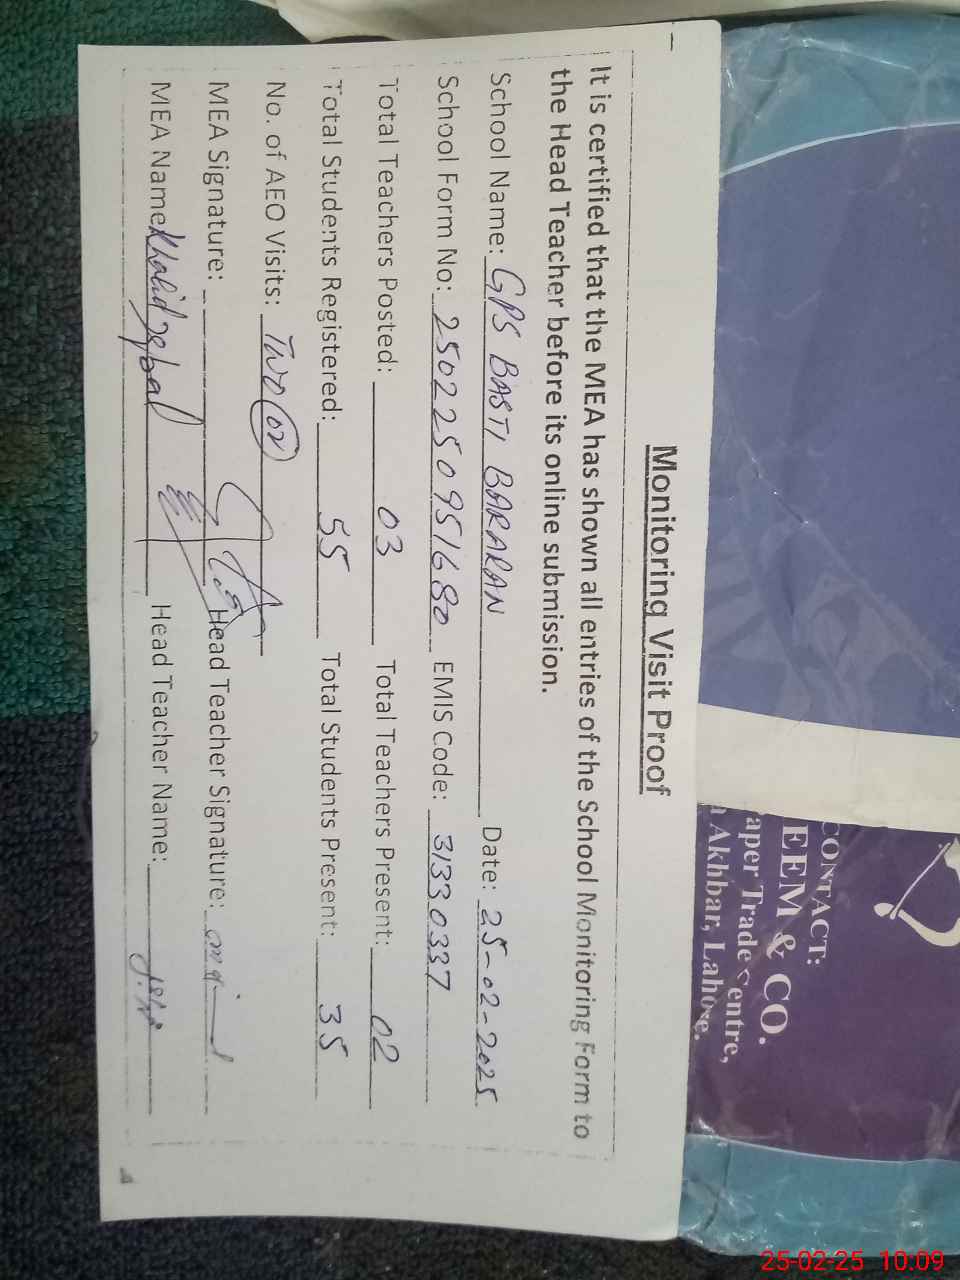 Monitoring Visit Proof
It is certified that the MEA has shown all entries of the School Monitoring Form to
the Head Teacher before its online submission.
School Name: GPS BASTI BARARAN Date: 25-02-2025
School Form No: 2502250951680 EMIS Code: 31330337
Total Teachers Posted: 03 Total Teachers Present: 02
Total Students Registered: 55 Total Students Present: 35
No. of AEO Visits: Two (02)
MEA Signature: Head Teacher Signature:
MEA Name: Khalid Iqbal Head Teacher Name:
CONTACT:
EEM & CO.
aper Trade Centre,
Akhbar, Lahore.
25-02-25 10:09